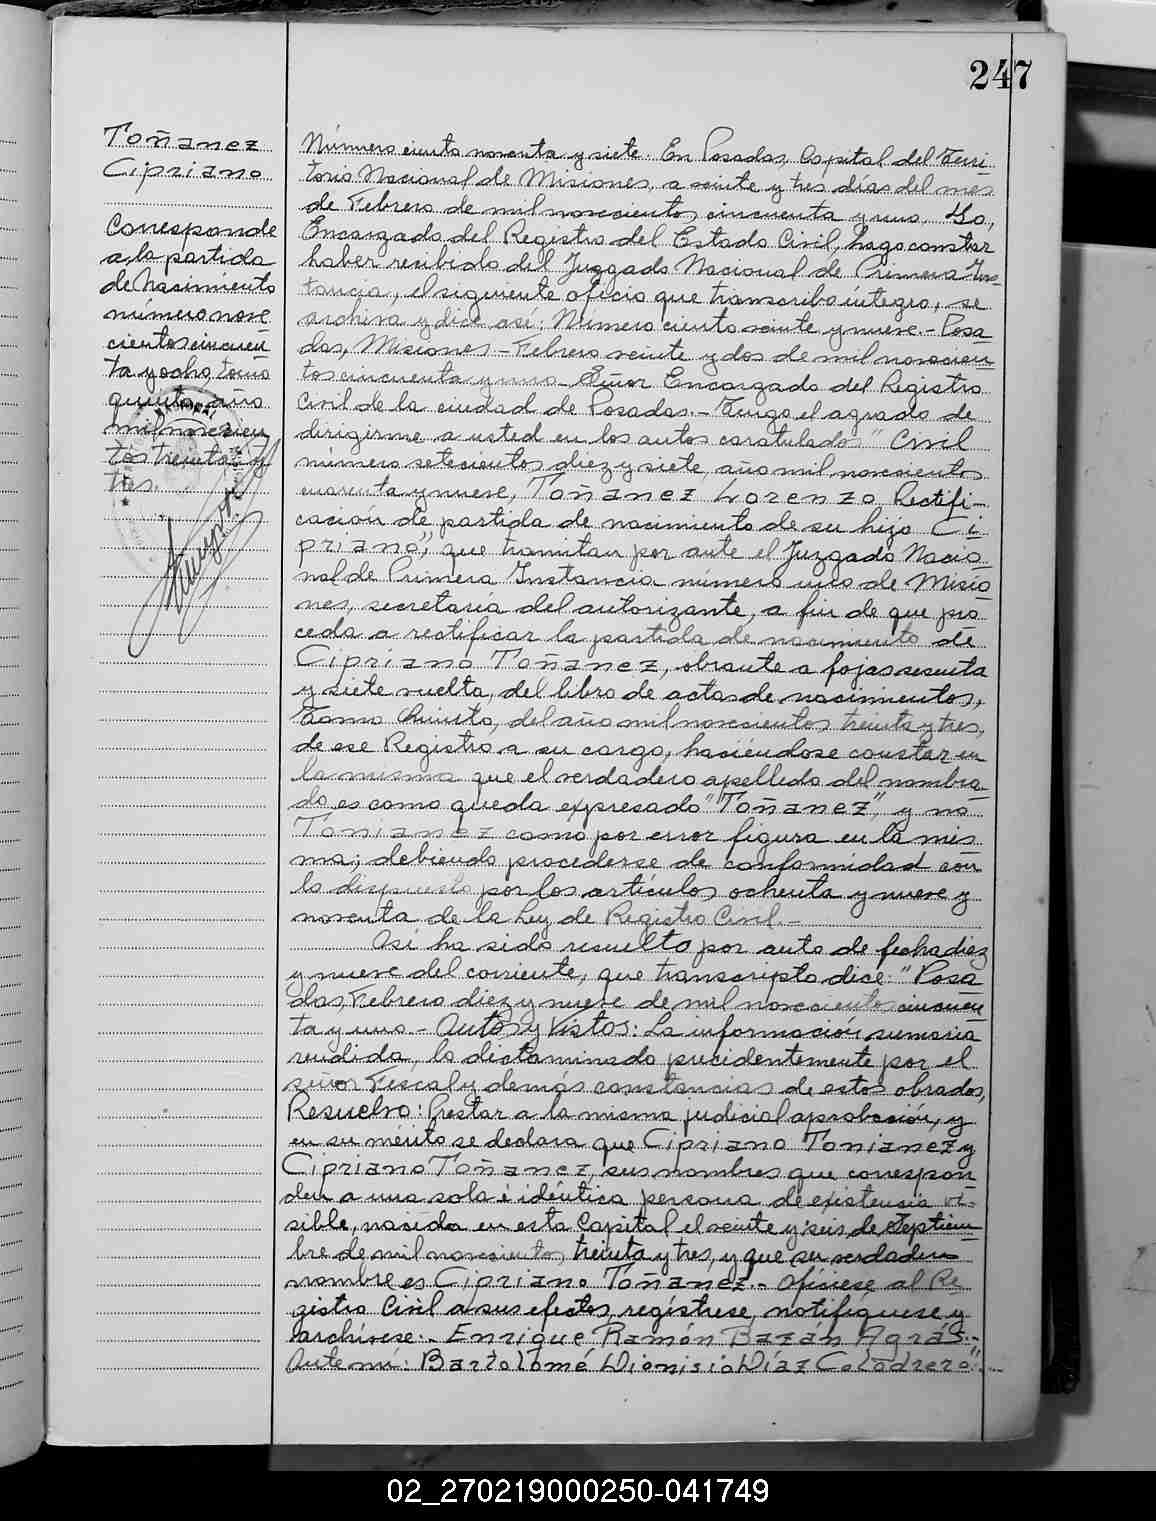 247
Toñanez
Cipriano
Corresponde
a la partida
de nacimiento
número nove
cientos cincuen
ta y ocho, tomo
quinto, año
mil novecien
tos treinta y
tres.
Número ciento noventa y siete. En Posadas, Capital del Terri
torio Nacional de Misiones, a veinte y tres días del mes
de Febrero de mil novecientos cincuenta y uno. Yo,
Encargado del Registro del Estado Civil, hago constar
haber recibido del Juzgado Nacional de Primera Ins-
tancia, el siguiente oficio que transcribo íntegro, se
archiva y dice así: Número ciento veinte y nueve.- Posa
das, Misiones - Febrero veinte y dos de mil novecien
tos cincuenta y uno - Señor Encargado del Registro
Civil de la ciudad de Posadas.- Tengo el agrado de
dirigirme a usted en los autos caratulados "Civil
número setecientos diez y siete, año mil novecientos
cuarenta y nueve, Toñanez Lorenzo Rectifi-
cación de partida de nacimiento de su hijo Ci
priano", que tramitan por ante el Juzgado Nacio
nal de Primera Instancia número uno de Misio
nes, secretaría del autorizante, a fin de que pro
ceda a rectificar la partida de nacimiento de
Cipriano Toñanez, obrante a fojas sesenta
y siete vuelta, del libro de actas de nacimientos,
Tomo Quinto, del año mil novecientos treinta y tres,
de ese Registro a su cargo, haciéndose constar en
la misma que el verdadero apellido del nombra-
do es como queda expresado "Toñanez", y no
Tonianez como por error figura en la mis
ma; debiendo procederse de conformidad con
lo dispuesto por los artículos ochenta y nueve y
noventa de la Ley de Registro Civil.-
Así ha sido resuelto por auto de fecha diez
y nueve del corriente, que transcripto dice: "Posa
das, Febrero diez y nueve de mil novecientos cincuen
ta y uno - Autos y Vistos: La información sumaria
rendida, lo dictaminado precedentemente por el
señor Fiscal y demás constancias de estos obrados,
Resuelvo: Prestar a la misma judicial aprobación, y
en su mérito se declara que Cipriano Tonianez y
Cipriano Toñanez, sus nombres que correspon
den a una sola é idéntica persona de existencia vi-
sible, nacida en esta Capital el veinte y seis de Septiem
bre de mil novecientos treinta y tres, y que su verdadero
nombre es Cipriano Toñanez.- Ofíciese al Re
gistro Civil a sus efectos, regístrese, notifíquese y
archívese.- Enrique Ramón Bazán Agrás.-
Ante mí: Bartolomé Dionisio Díaz Colodrero".-
02_270219000250-041749